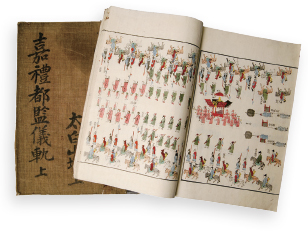 嘉禮都監儀軌 上
太白